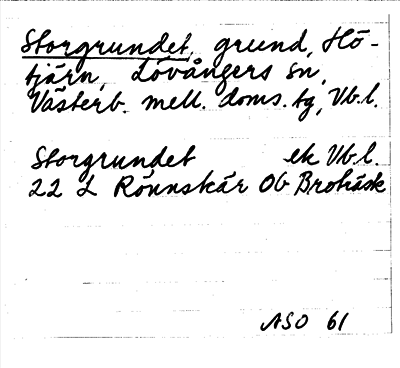 Storgrundet, grund, Hö-
tjärn, Lövångers sn,
Västerb. mell. doms. tg, Vb.l.
Storgrundet ek Vb.l.
22 L Rönnskär Ob Broträsk
ASO 61